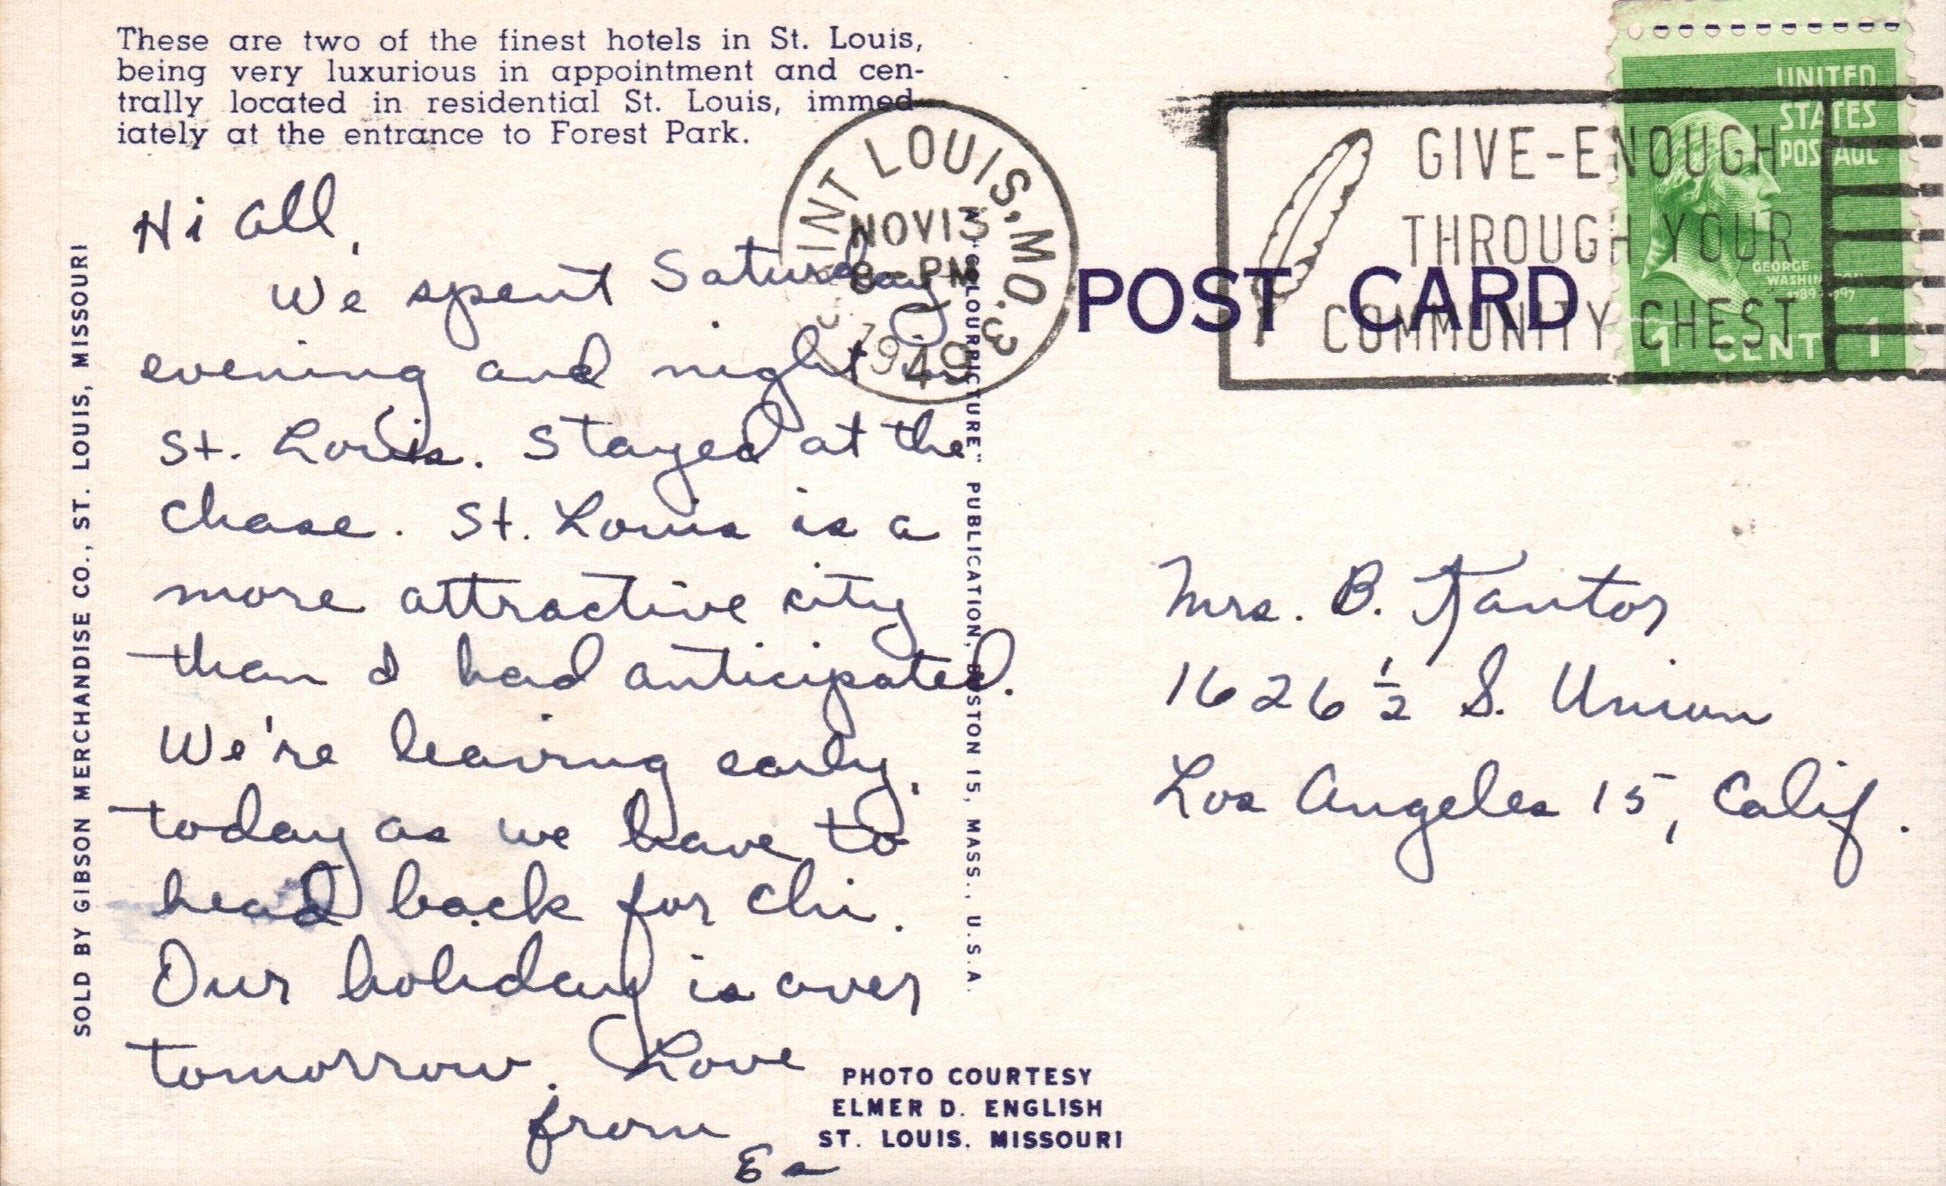 These are two of the finest hotels in St. Louis,
being very luxurious in appointment and cen-
trally located in residential St. Louis, immed-
iately at the entrance to Forest Park.
Hi all,
We spent Saturday
evening and night in
St. Louis. Stayed at the
Chase. St. Louis is a
more attractive city
than I had anticipated.
We're leaving early,
today as we have to
head back for Chi.
Our holiday is over
tomorrow. Love
from
SOLD BY GIBSON MERCHANDISE CO., ST. LOUIS, MISSOURI
A "COLOURPICTURE" PUBLICATION, BOSTON 15, MASS., U.S.A.
PHOTO COURTESY
ELMER D. ENGLISH
ST. LOUIS, MISSOURI
POST CARD
SAINT LOUIS, MO. 3
NOV 13
8 - PM
1949
GIVE-ENOUGH
THROUGH YOUR
COMMUNITY CHEST
UNITED
STATES
POSTAGE
GEORGE
WASHINGTON
1789-1797
1 CENT 1
Mrs. B. Kantor
1626 1/2 S. Union
Los Angeles 15, Calif.